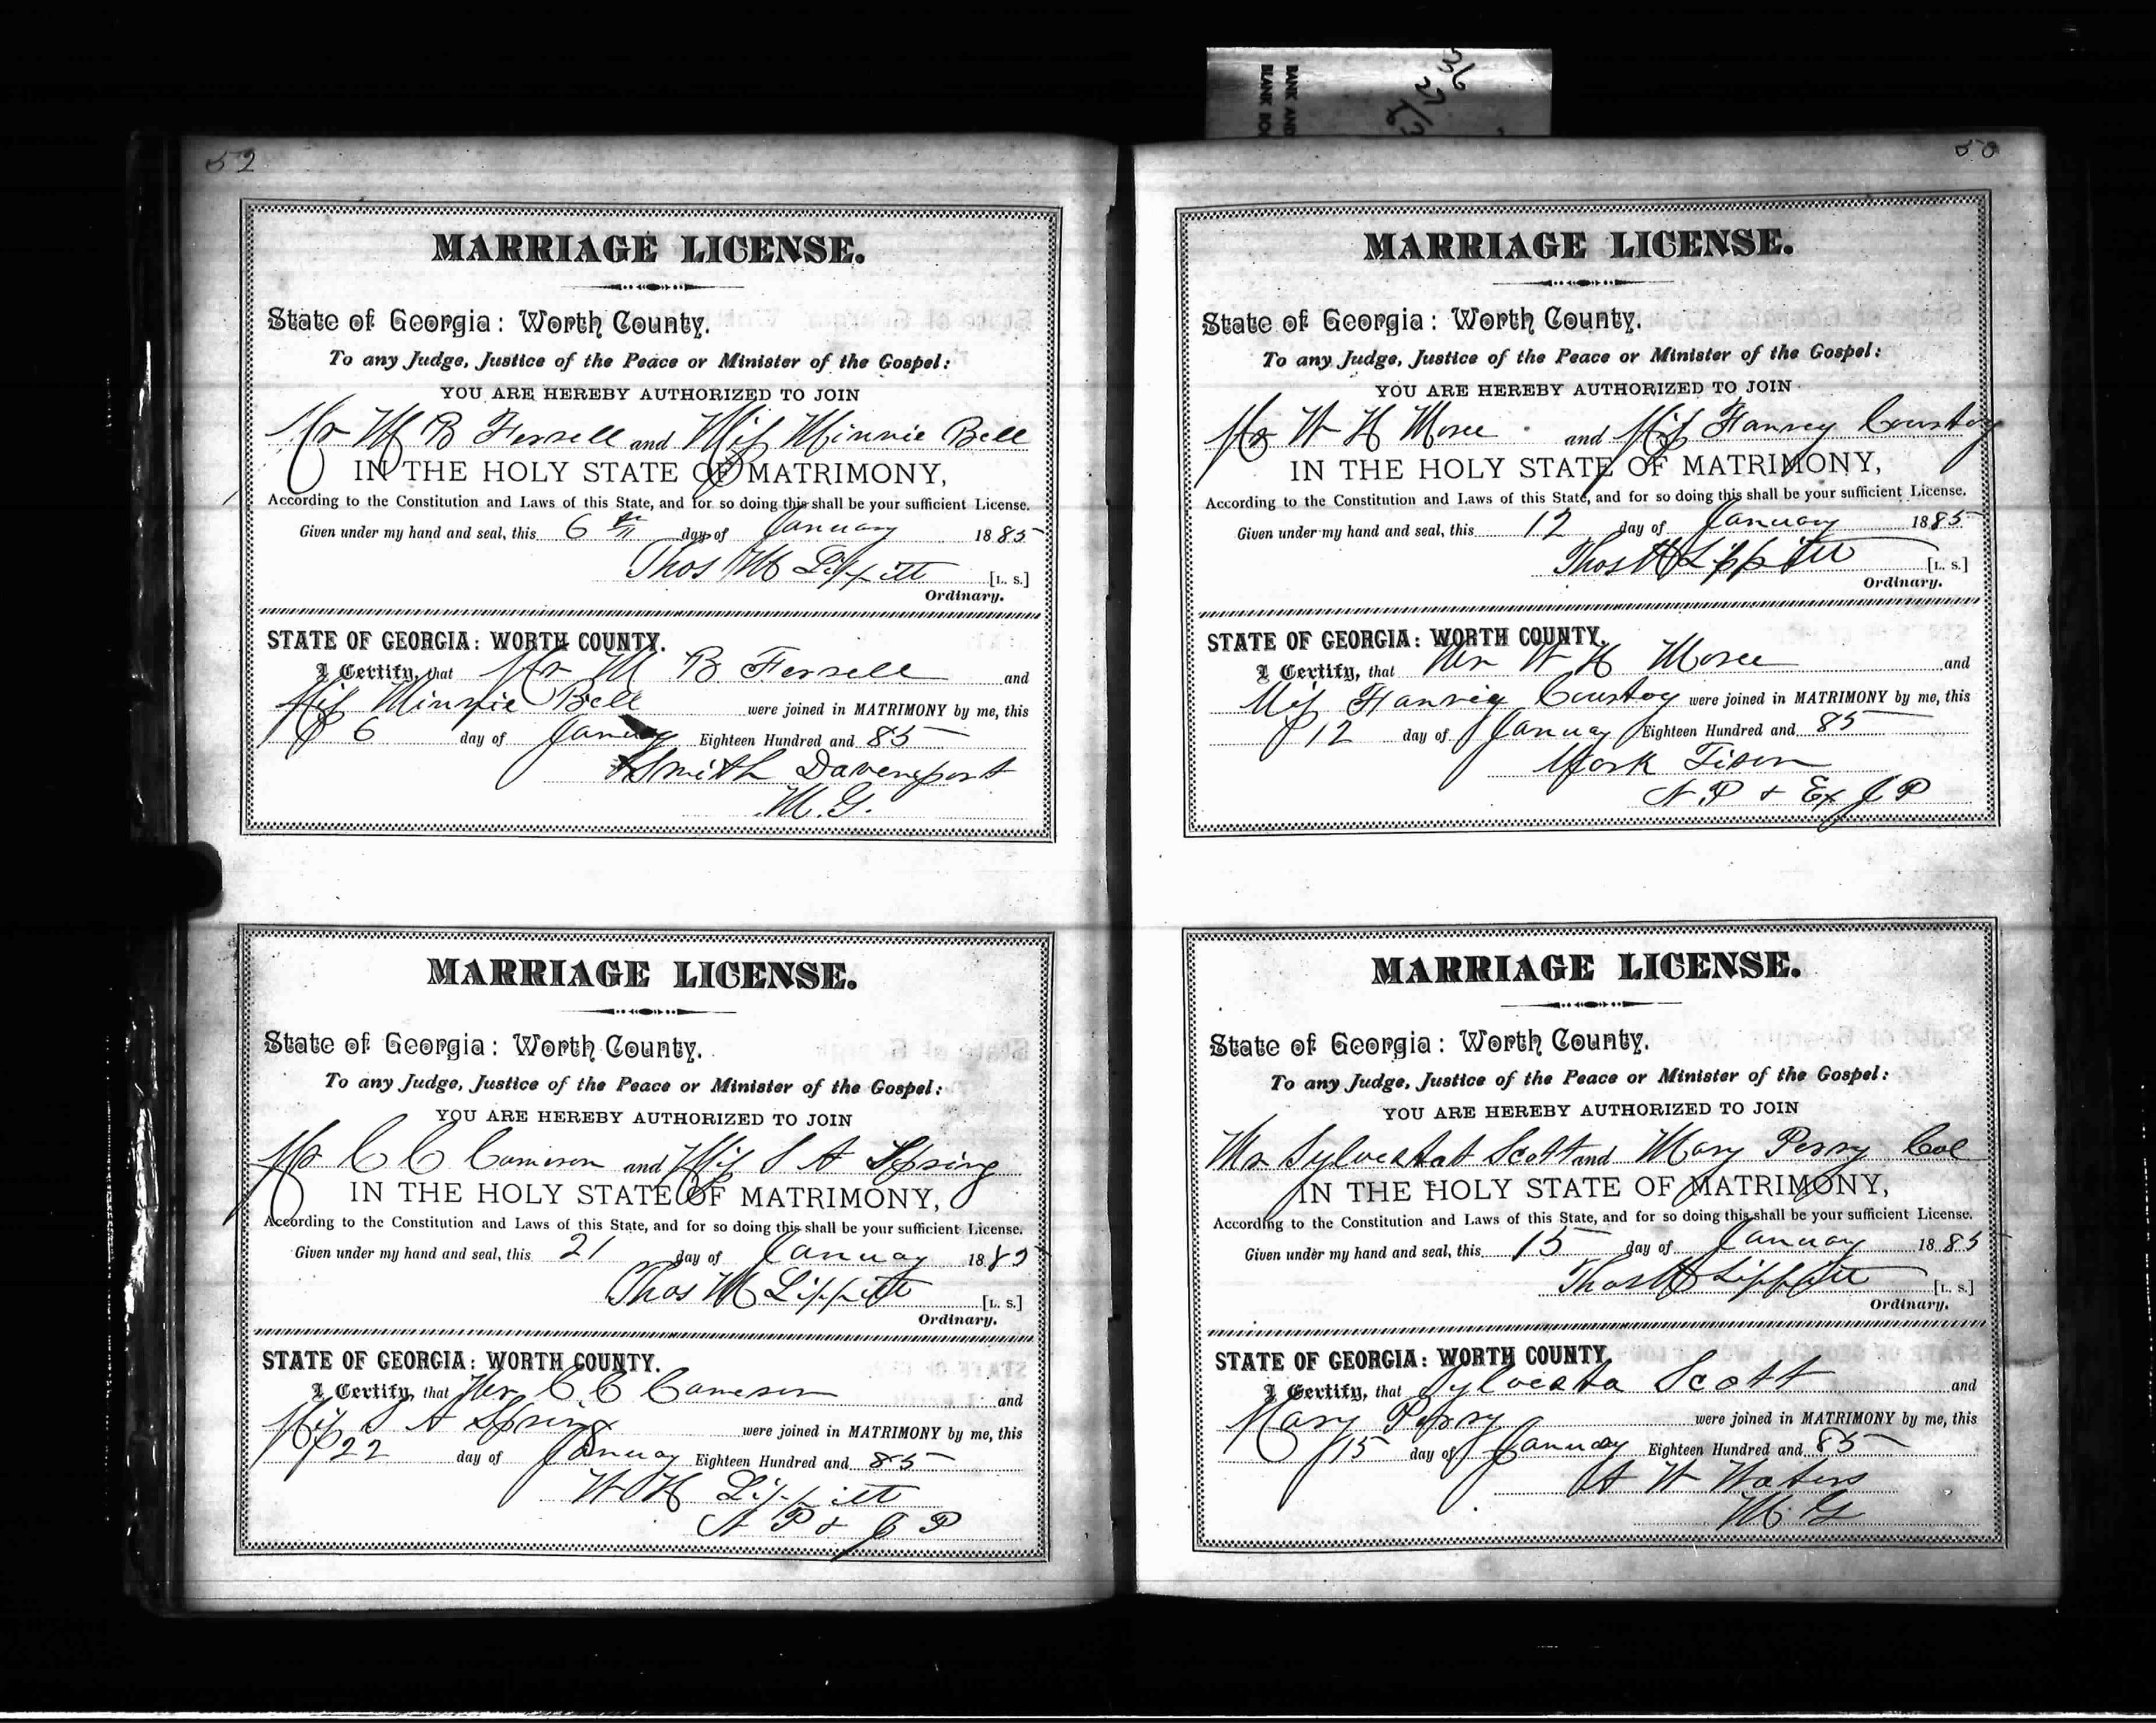 52
MARRIAGE LICENSE.
State of Georgia: Worth County.
To any Judge, Justice of the Peace or Minister of the Gospel:
YOU ARE HEREBY AUTHORIZED TO JOIN
Mr M B Ferrell and Miss Minnie Bell
IN THE HOLY STATE OF MATRIMONY,
According to the Constitution and Laws of this State, and for so doing this shall be your sufficient License.
Given under my hand and seal, this 6th day of January 1885
Thos M Lippitt [L. S.]
Ordinary.
STATE OF GEORGIA: WORTH COUNTY.
I Certify, that Mr M B Ferrell and
Miss Minnie Bell were joined in MATRIMONY by me, this
6 day of January Eighteen Hundred and 85
Smith Davenport
M.G.
MARRIAGE LICENSE.
State of Georgia: Worth County.
To any Judge, Justice of the Peace or Minister of the Gospel:
YOU ARE HEREBY AUTHORIZED TO JOIN
Mr C C Cameron and Miss S A Spring
IN THE HOLY STATE OF MATRIMONY,
According to the Constitution and Laws of this State, and for so doing this shall be your sufficient License.
Given under my hand and seal, this 21 day of January 1885
Thos M Lippitt [L. S.]
Ordinary.
STATE OF GEORGIA: WORTH COUNTY.
I Certify, that Mr C C Cameron and
Miss S A Spring were joined in MATRIMONY by me, this
22 day of January Eighteen Hundred and 85
W H Lippitt
N P & J P
BANK AND
BLANK BO
MARRIAGE LICENSE.
State of Georgia: Worth County.
To any Judge, Justice of the Peace or Minister of the Gospel:
YOU ARE HEREBY AUTHORIZED TO JOIN
Mr W H and Miss
IN THE HOLY STATE OF MATRIMONY,
According to the Constitution and Laws of this State, and for so doing this shall be your sufficient License.
Given under my hand and seal, this 12 day of January 1885
Thos M Lippitt [L. S.]
Ordinary.
STATE OF GEORGIA: WORTH COUNTY.
I Certify, that Mr W H and
Miss were joined in MATRIMONY by me, this
12 day of January Eighteen Hundred and 85
Mark Tison
N P & Ex J P
MARRIAGE LICENSE.
State of Georgia: Worth County.
To any Judge, Justice of the Peace or Minister of the Gospel:
YOU ARE HEREBY AUTHORIZED TO JOIN
Mr Scott and Mary Perry Col
IN THE HOLY STATE OF MATRIMONY,
According to the Constitution and Laws of this State, and for so doing this shall be your sufficient License.
Given under my hand and seal, this 15 day of January 1885
Thos M Lippitt [L. S.]
Ordinary.
STATE OF GEORGIA: WORTH COUNTY.
I Certify, that Sylvesta Scott and
Mary Perry were joined in MATRIMONY by me, this
15 day of January Eighteen Hundred and 85
A W Waters
M G